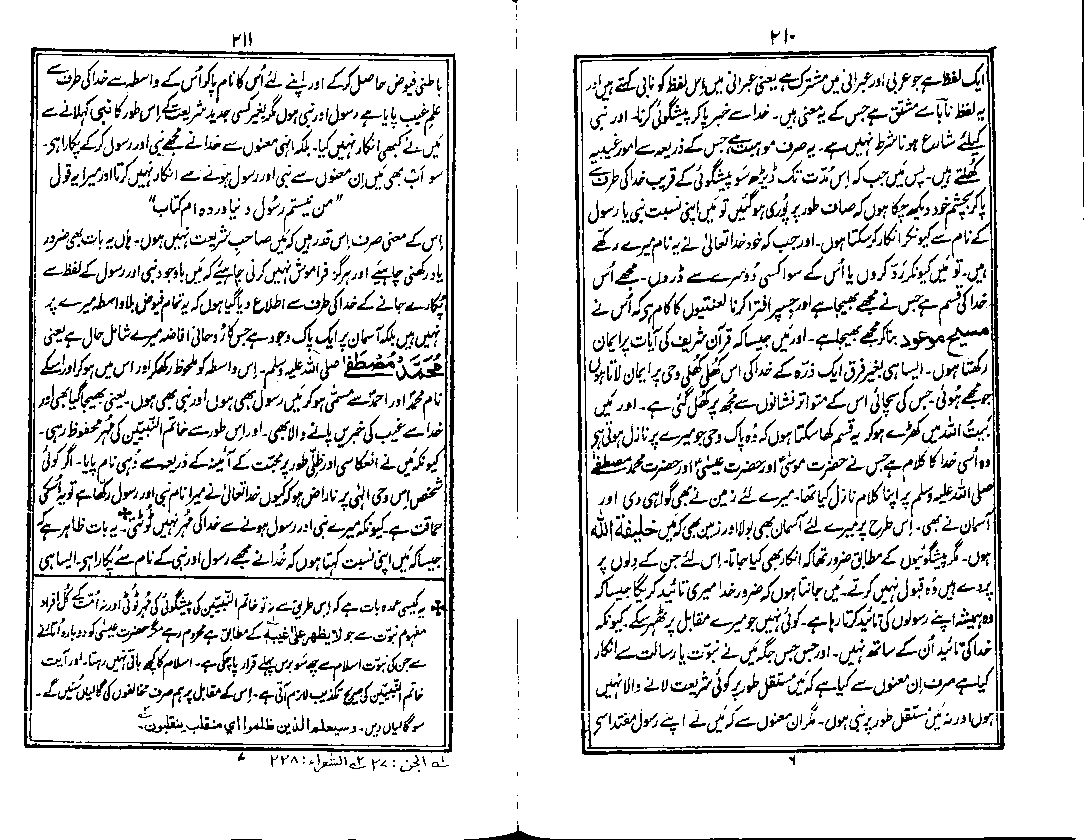 ۲۱۰
ایک لفظ ہے جو عربی اور عبرانی میں مشترک ہے یعنی عبرانی میں اِس لفظ کو نابی کہتے ہیں اور
یہ لفظ نابا سے مشتق ہے جس کے یہ معنی ہیں۔ خدا سے خبر پا کر پیشگوئی کرنا۔ اور نبی
کیلئے شارع ہونا شرط نہیں ہے۔ یہ صرف موہبت ہے جس کے ذریعہ سے امور غیبیہ
کُھلتے ہیں۔ پس میں جب کہ اِس مُدّت تک ڈیڑھ سو پیشگوئی کے قریب خدا کی طرف سے
پا کر بچشم خود دیکھ چکا ہوں کہ صاف طور پر پُوری ہو گئیں تو مَیں اپنی نسبت نبی یا رسول
کے نام سے کیونکر انکار کر سکتا ہوں۔ اور جب کہ خود خدا تعالیٰ نے یہ نام میرے رکھے
ہیں۔ تو مَیں کیونکر رَدّ کروں یا اُس کے سوا کسی دُوسرے سے ڈروں۔ مجھے اُس
خدا کی قسم ہے جس نے مجھے بھیجا ہے اور جسپر افترا کرنا لعنتیوں کا کام ہے کہ اُس نے
مسیح موعود بنا کر مجھے بھیجا ہے۔ اور مَیں جیسا کہ قرآن شریف کی آیات پر ایمان
رکھتا ہوں۔ ایسا ہی بغیر فرق ایک ذرّہ کے خدا کی اس کُھلی کُھلی وحی پر ایمان لاتا ہوں
جو مجھے ہُوئی۔ جس کی سچائی اس کے متواتر نشانوں سے مجھ پر کُھل گئی ہے۔ اور مَیں
بیت اللہ میں کھڑے ہو کر یہ قسم کھا سکتا ہوں کہ وُہ پاک وحی جو میرے پر نازل ہوتی ہو
وہ اُسی خدا کا کلام ہے جس نے حضرت موسیٰؑ اور حضرت عیسیٰؑ اور حضرت محمد مصطفےٰ
صلی اللہ علیہ وسلم پر اپنا کلام نازل کیا تھا۔ میرے لئے زمین نے بھی گواہی دی اور
آسمان نے بھی۔ اِس طرح پر میرے لئے آسمان بھی بولا اور زمین بھی کہ مَیں خلیفۃ اللہ
ہوں۔ مگر پیشگوئیوں کے مطابق ضرور تھا کہ انکار بھی کیا جاتا۔ اِس لئے جن کے دِلوں پر
پردے ہیں وُہ قبول نہیں کرتے۔ مَیں جانتا ہوں کہ ضرور خدا میری تائید کریگا جیسا کہ
وہ ہمیشہ اپنے رسولوں کی تائید کرتا رہا ہے۔ کوئی نہیں جو میرے مقابل پر ٹھہر سکے۔ کیونکہ
خدا کی تائید اُن کے ساتھ نہیں۔ اور جس جس جگہ مَیں نے نبوّت یا رسالت سے انکار
کیا ہے صرف اِن معنوں سے کیا ہے کہ مَیں مستقل طور پر کوئی شریعت لانے والا نہیں
ہوں اور نہ مَیں مستقل طور پر نبی ہوں۔ مگر اِن معنوں سے کہ مَیں نے اپنے رسول مقتدا سے
۶
۲۱۱
باطنی فیوض حاصل کر کے اور اپنے لئے اُس کا نام پا کر اُس کے واسطہ سے خدا کی طرف سے
علم غیب پایا ہے رسول اور نبی ہوں مگر بغیر کسی جدید شریعت کے اِس طور کا نبی کہلانے سے
مَیں نے کبھی انکار نہیں کیا۔ بلکہ انہی معنوں سے خدا نے مجھے نبی اور رسول کر کے پکارا ہی۔
سو اَب بھی مَیں اِن معنوں سے نبی اور رسول ہونے سے انکار نہیں کرتا اور میرا یہ قول
”من نیستم رسُول و نیاوردہ ام کتاب“
اِس کے معنی صرف اِس قدر ہیں کہ مَیں صاحب شریعت نہیں ہوں۔ ہاں یہ بات بھی ضرور
یاد رکھنی چاہئیے اور ہرگز فراموش نہیں کرنی چاہئیے کہ مَیں باوجود نبی اور رسول کے لفظ سے
پُکارے جانے کے خدا کی طرف سے اطلاع دیا گیا ہوں کہ یہ تمام فیوض بلا واسطہ میرے پر
نہیں ہیں بلکہ آسمان پر ایک پاک وجود ہے جس کا رُوحانی افاضہ میرے شامل حال ہے یعنی
محمد مصطفےٰ صلی اللہ علیہ وسلم۔ اِس واسطہ کو ملحوظ رکھ کر اور اس میں ہو کر اور اسکے
نام محمدؐ اور احمدؐ سے مسمّٰی ہو کر مَیں رسول بھی ہوں اور نبی بھی ہوں۔ یعنی بھیجا گیا بھی اور
خدا سے غیب کی خبریں پانے والا بھی۔ اور اِس طور سے خاتم النبیّین کی مُہر محفوظ رہی۔
کیونکہ مَیں نے انعکاسی اور ظلّی طور پر محبّت کے آئینہ کے ذریعہ سے وُہی نام پایا۔ اگر کوئی
شخص اِس وحی الٰہی پر ناراض ہو کہ کیوں خدا تعالیٰ نے میرا نام نبی اور رسول رکھا ہے تو یہ اُسکی
حماقت ہے۔ کیونکہ میرے نبی اور رسول ہونے سے خدا کی مُہر نہیں ٹُوٹتی٭۔ یہ بات ظاہر ہے کہ
جیسا کہ مَیں اپنی نسبت کہتا ہوں کہ خُدا نے مجھے رسول اور نبی کے نام سے پُکارا ہی۔ ایسا ہی
٭ یہ کیسی عمدہ بات ہے کہ اِس طریق سے نہ تو خاتم النبیّین کی پیشگوئی کی مُہر ٹُوٹی اور نہ اُمّت کے کُل افراد
مفہوم نبوّت سے جو لا یظھر علیٰ غیبہ کے مطابق ہے محروم رہے مگر حضرت عیسیٰؑ کو دوبارہ اُتارنے
سے جن کی نبوّت اسلام سے چھ سو برس پہلے قرار پا چکی ہے۔ اسلام کا کچھ باقی نہیں رہتا۔ اور آیت
خاتم النبیّین کی صریح تکذیب لازم آتی ہے۔ اِس کے مقابل پر ہم صرف مخالفوں کی گالیاں سُنیں گے۔
سو گالیاں دیں۔ وسیعلم الذین ظلموا ای منقلب ینقلبون۔
۱ الجن: ۲۷ ۲ الشعراء: ۲۲۸
۷